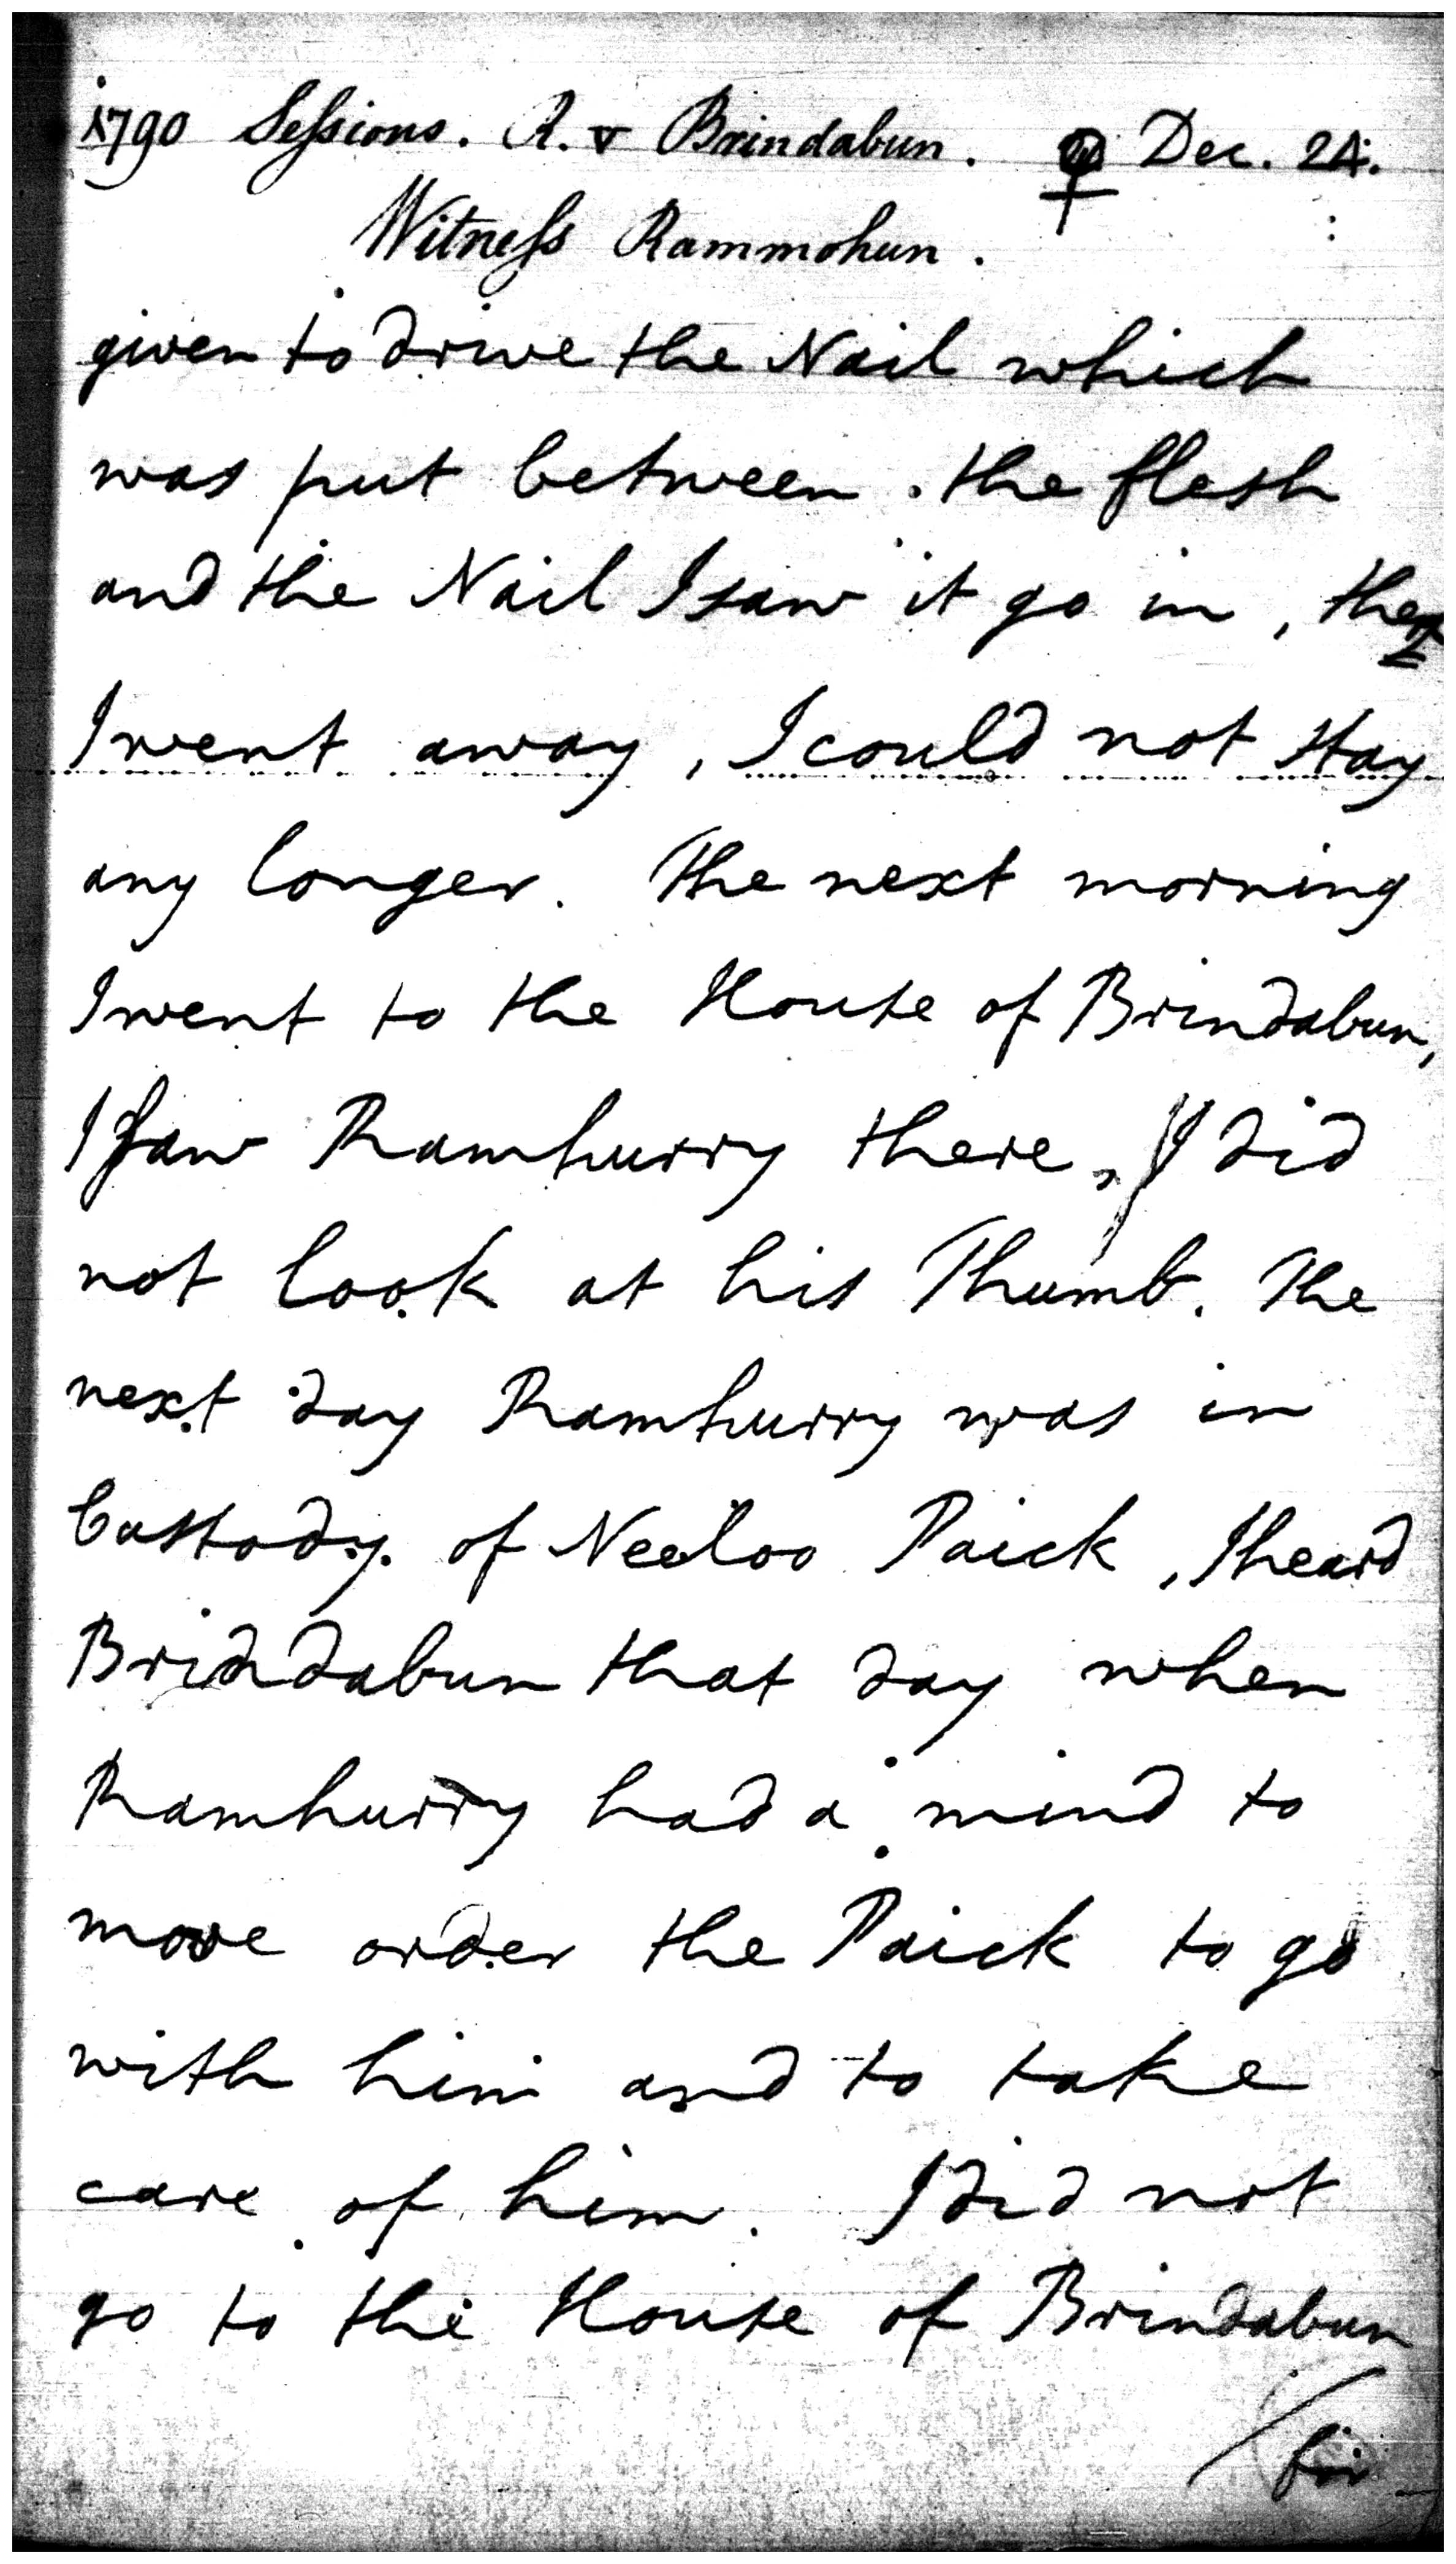 1790 Sessions. R. v Brindabun. ♀ Dec. 24.
Witness Rammohun.
given to drive the Nail which
was put between the flesh
and the Nail I saw it go in, then
I went away, I could not stay
any longer. The next morning
I went to the House of Brindabun,
I saw Ramhurry there, I did
not look at his Thumb. The
next day Ramhurry was in
Custody of Neeloo Paick, I heard
Brindabun that day when
Ramhurry had a mind to
move order the Paick to go
with him and to take
care of him. I did not
go to the House of Brindabun
for